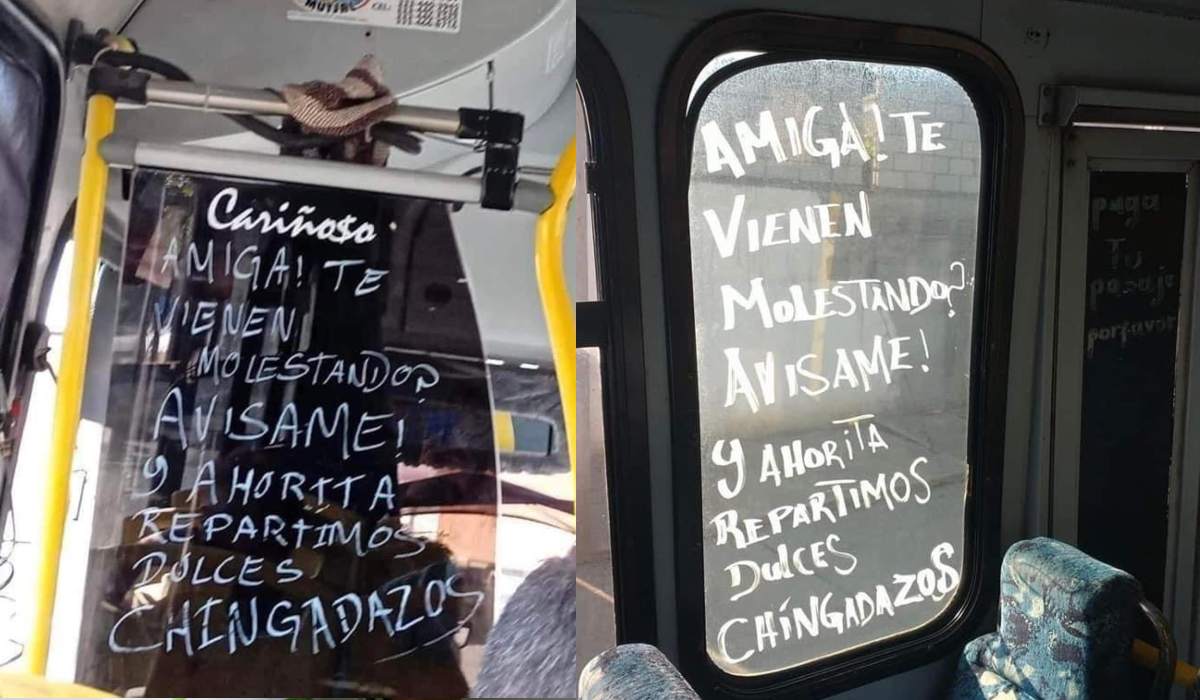 Cariño$o
AMIGA! TE
VIENEN
MOLESTANDO?
AVISAME!
Y AHORITA
REPARTIMOS
DULCES
CHINGADAZOS
AMIGA! TE
VIENEN
MOLESTANDO?
AVISAME!
Y AHORITA
REPARTIMOS
DULCES
CHINGADAZOS
paga
Tu
pasaje
porfavor